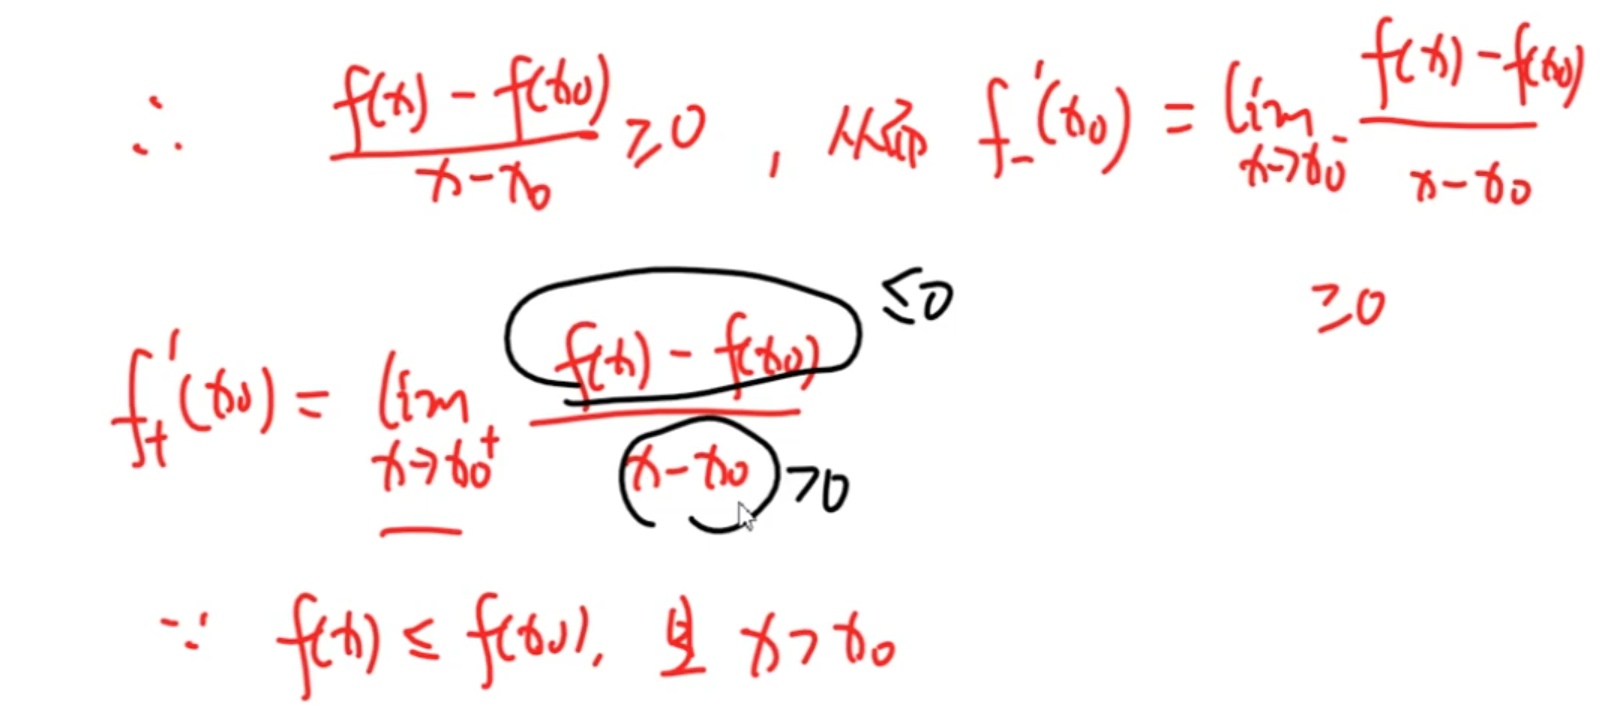 ∴ (f(x) - f(x₀))/(x - x₀) ≥ 0 , 从而 f₋′(x₀) = lim_{x→x₀⁻} (f(x) - f(x₀))/(x - x₀)
≥0
f₊′(x₀) = lim_{x→x₀⁺} (f(x) - f(x₀))/(x - x₀) ≤0 >0
∵ f(x) ≤ f(x₀), 且 x > x₀